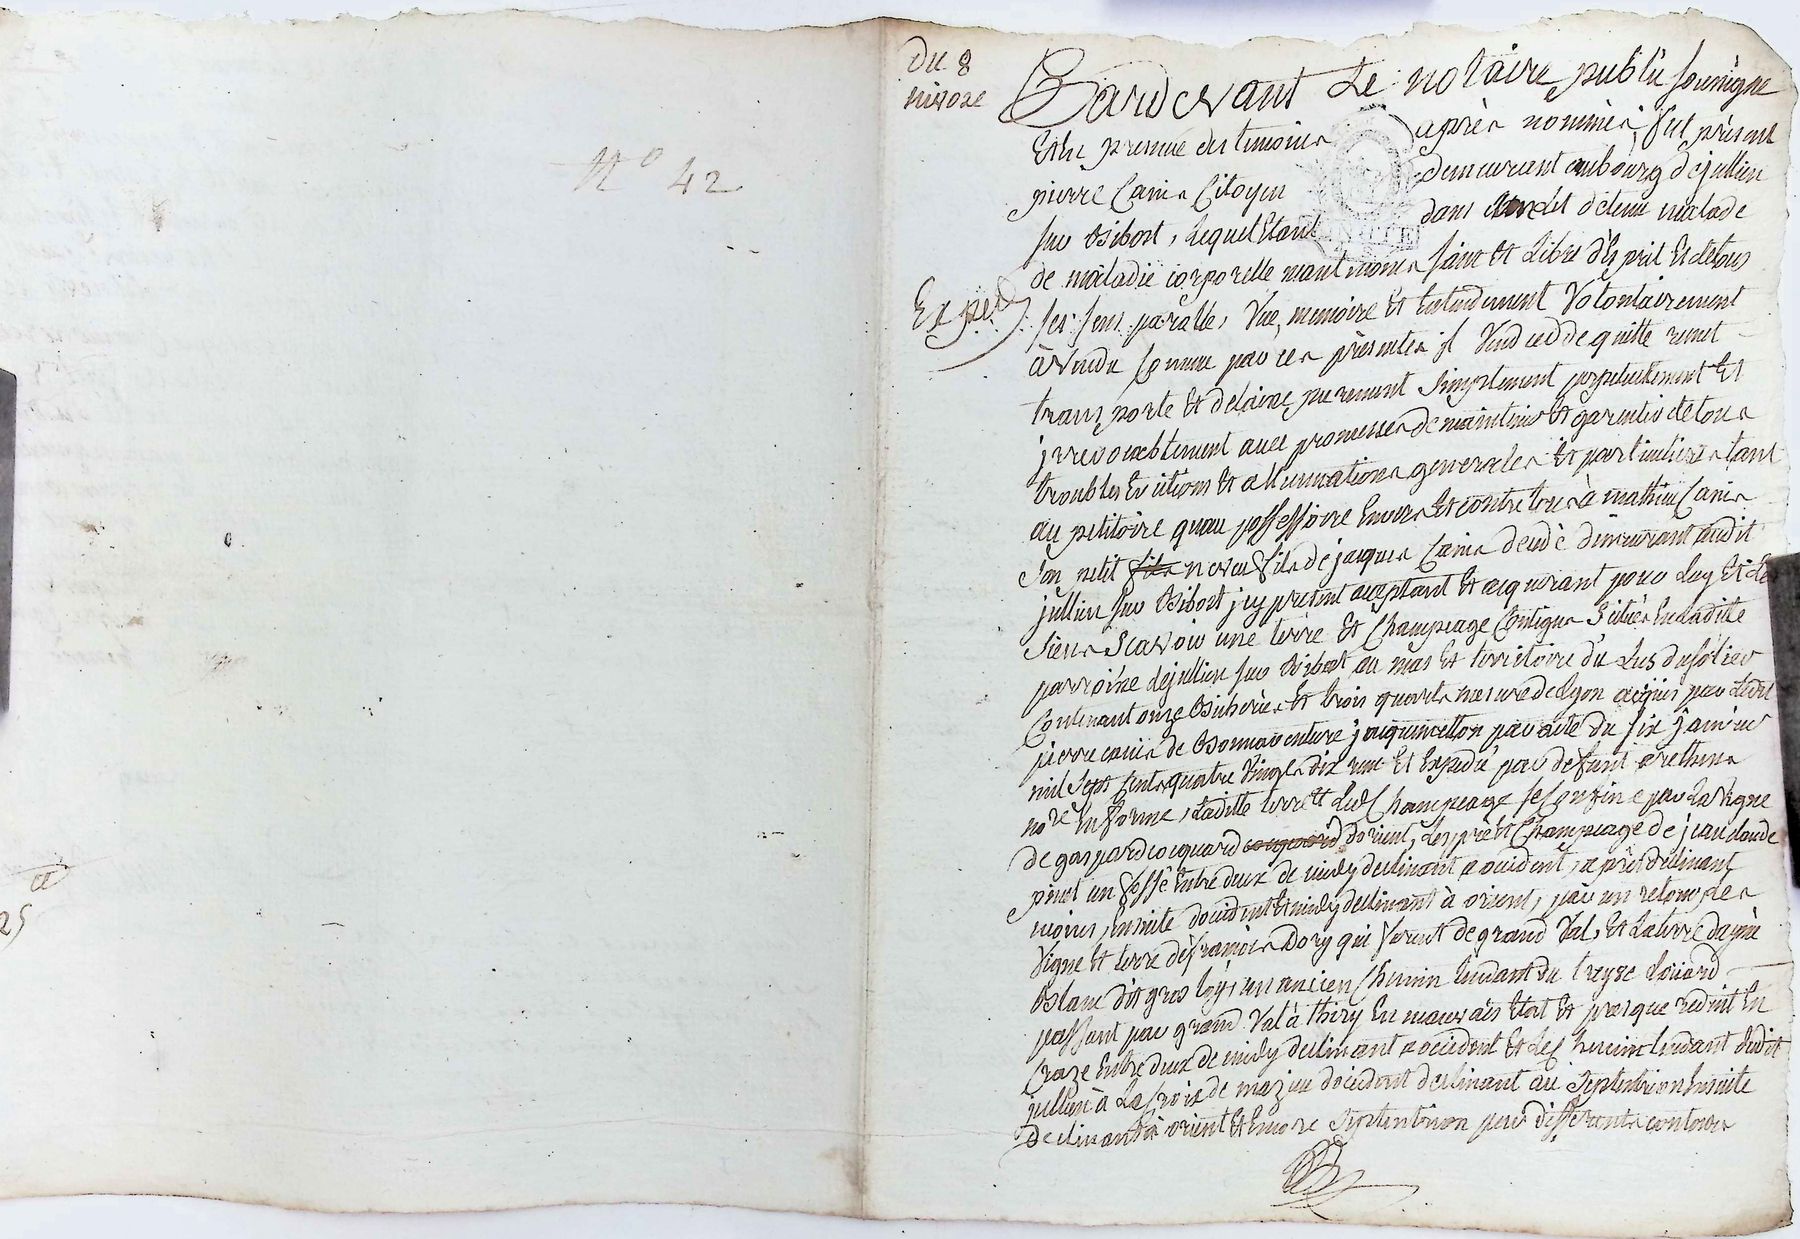 N° 42
25
du 8
nivose
Exped.
Pardevant Le notaire public soussigné
Et En presence des temoins après nommés, fut présent
pierre Canis Citoyen demeurant au bourg de jullien
sur Bibost, Lequel Etant dans detenu malade
de maladie corporelle neantmoins sain et Libre d'Esprit Et de tous
ses sens parolle, Vüe, memoire et Entendement Volontairement
à Vendu Comme par ces présentes il Vend cedde quitte remet
transporte Et delaisse purement simplement perpetuellement Et
jrrevocablement avec promesses de maintenir et garentir de tous
troubles Evictions et generales et particulieres tant
au petitoire quau possessoire Envers Et contre tous à mathieu Canis
son petit fils neveu fils de jacques Canis demeurant audit
jullien sur Bibost jcy présent acceptant Et acquerant pour Luy Et Les
siens Scavoir une terre Et Champeage Contigus Situés En Ladite
parroisse de jullien sur Bibost au mas Et territoire du
Contenant onze Bicherées et trois quarts mesure de Lyon acquis par Ledit
pierre canis de Bonnaventure par acte du six janvier
mil sept Cents quatre Vingts dix Et Expedié par defunt
no.re En forme, Ladite terre et Led. Champeage se Confine par La Vigne
de gaspard coquard coquard dorient, Les pré et Champeage de jean claude
pinet un fossé Entre deux de midy declinant a occident, après declinant
moins, Ensuite doccident Et midy declinant à orient, par un retour Les
Vigne et terre de françois Dory qui furent de grand Val, Et La terre
Blanc dit gros un ancien Chemin tendant du
passant par grand Val à thizy En mauvais Etat Et presque reduit En
Craze Entre deux de midy declinant a occident Et Le Chemin tendant dudit
jullien à La Croix de doccident declinant au Septentrion Ensuite
declinant à orient Et Encore Septentrion par differents contours